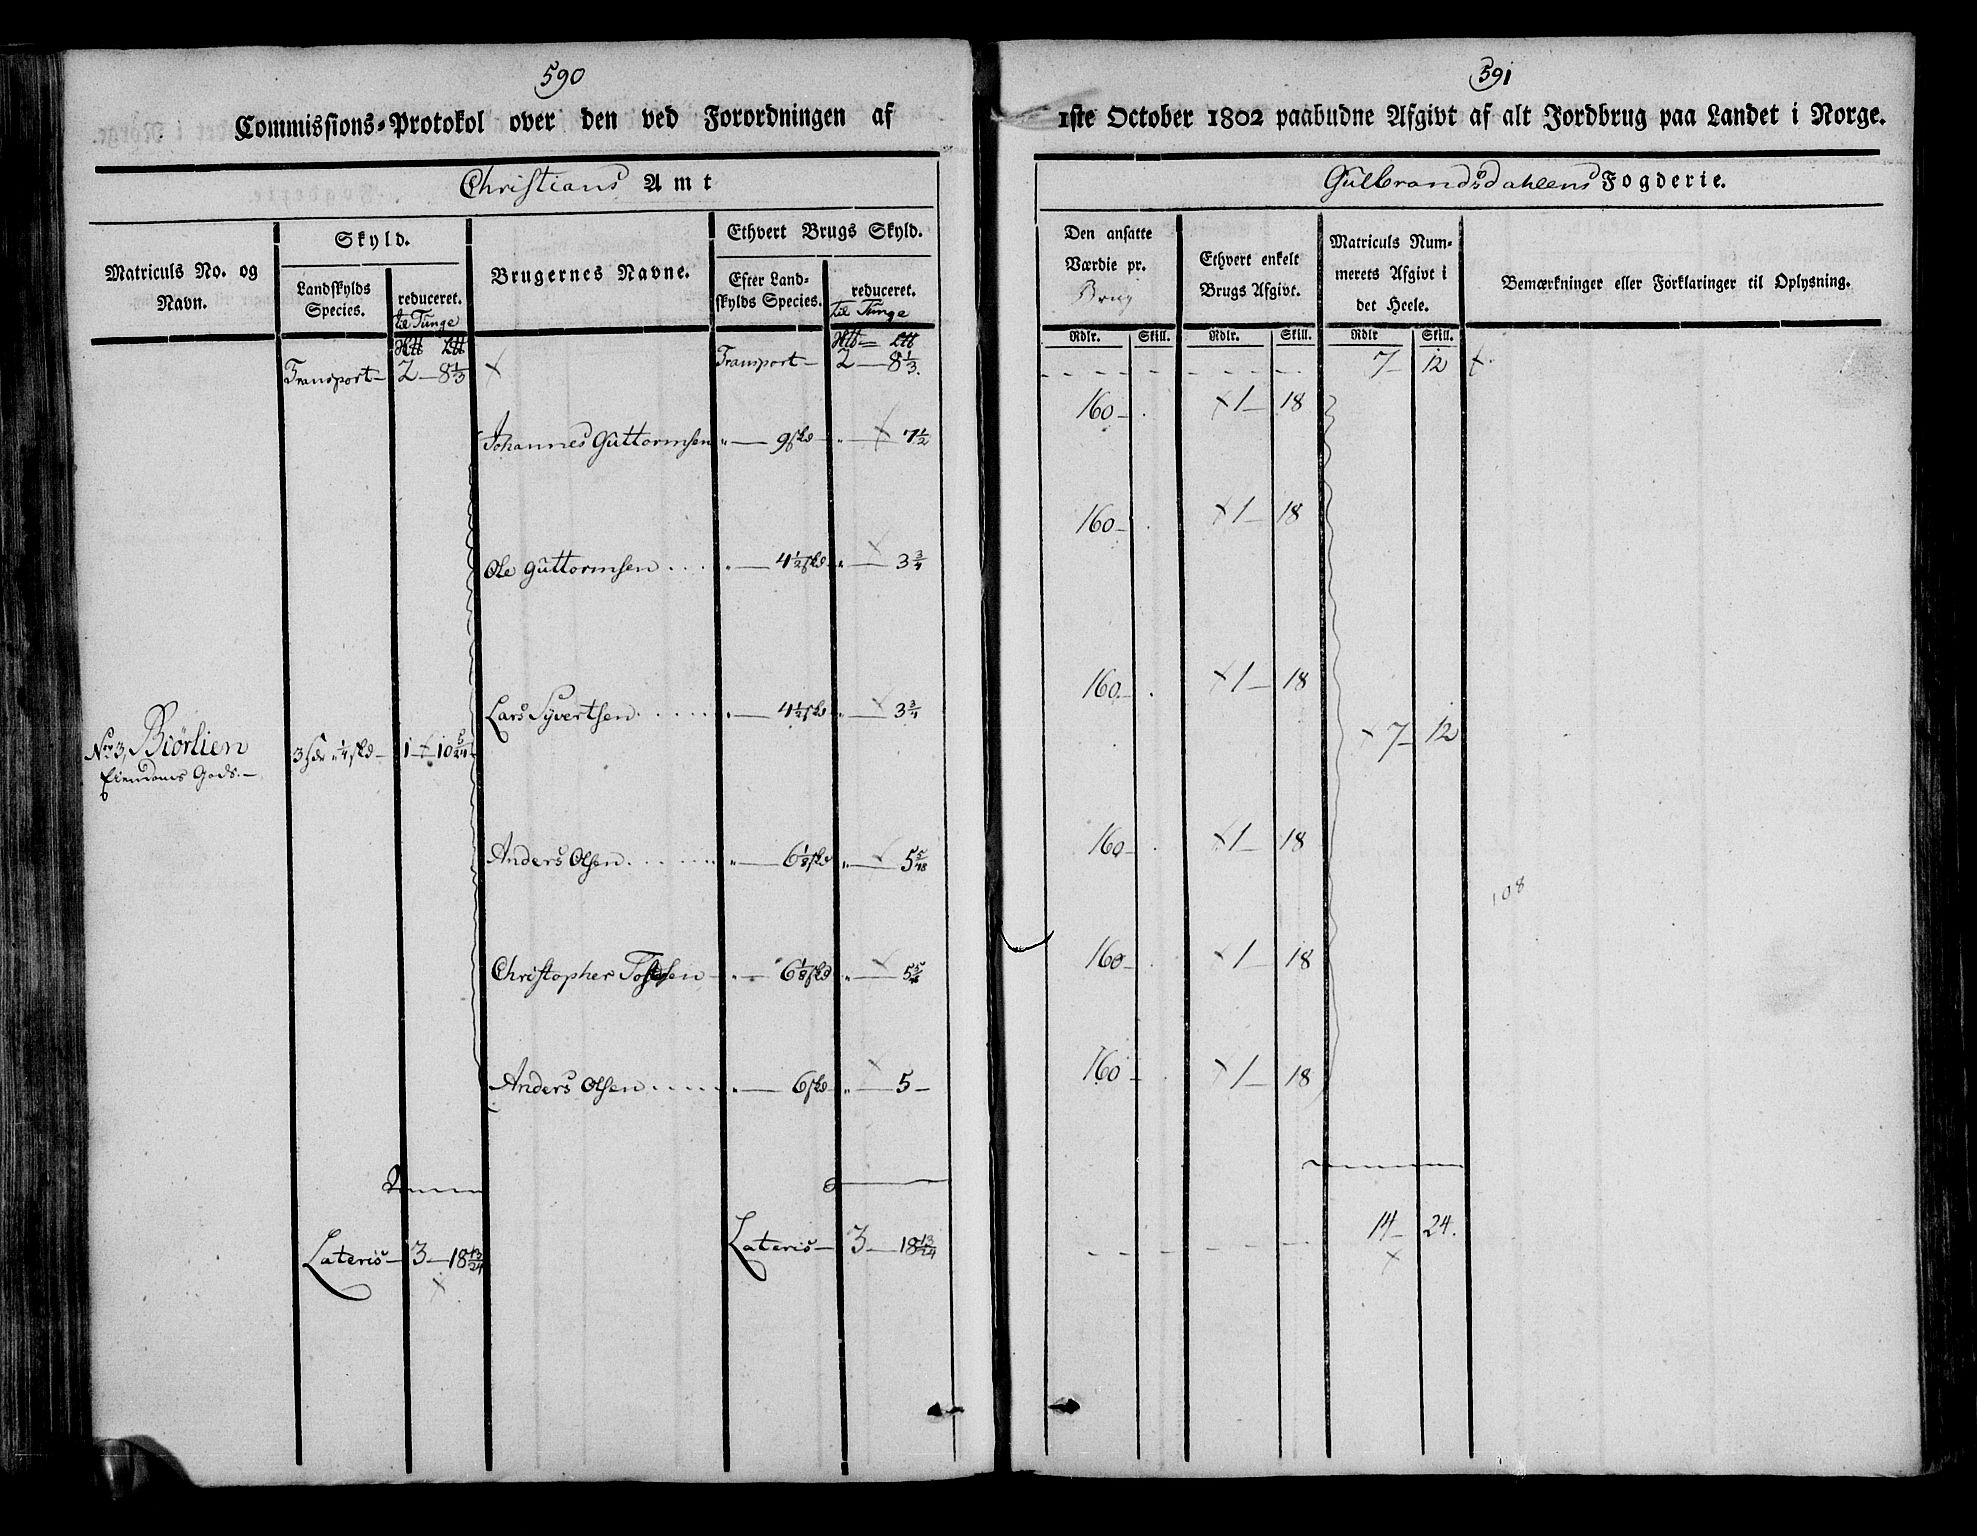 590
Commissions-Protokol over den ved Forordningen af
Christians Amt
Matriculs No. og Navn.
Skyld.
Landskylds Species.
reduceret. til Tunge
Brugernes Navne.
Ethvert Brugs Skyld.
Efter Landskylds Species.
reduceret. til Tunge
Transport— 2—8 1/3 Transport— 2—8 1/3.
Johannes Guttormsen „— 9 skd „— 7 1/2
Ole Guttormsen „— 4 1/2 skd „— 3 3/4
Lars Syvertsen „— 4 1/2 skd „— 3 3/4
No 3, Biørlien 1—10 5/24
Eiendoms Gods.—
Anders Olsen „— 6 1/8 skd „— 5 5/48
Christopher „— 6 1/8 skd „— 5
Anders Olsen „— 6 skd „— 5—
Lateris— 3—18 13/24 Lateris— 3—18 13/24
591
1ste October 1802 paabudne Afgivt af alt Jordbrug paa Landet i Norge.
Gulbrandsdahlens Fogderie.
Den ansatte Værdie pr. Brug
Ethvert enkelt Brugs Afgivt.
Matriculs Nummerets Afgivt i det Heele.
Bemærkninger eller Forklaringer til Oplysning.
Rdlr. Skill. Rdlr. Skill. Rdlr Skill.
7— 12
160— . 1— 18
160— . 1— 18
160— . 1— 18
7— 12
160— . 1— 18
108
160— . 1— 18
160— . 1— 18
14— 24.